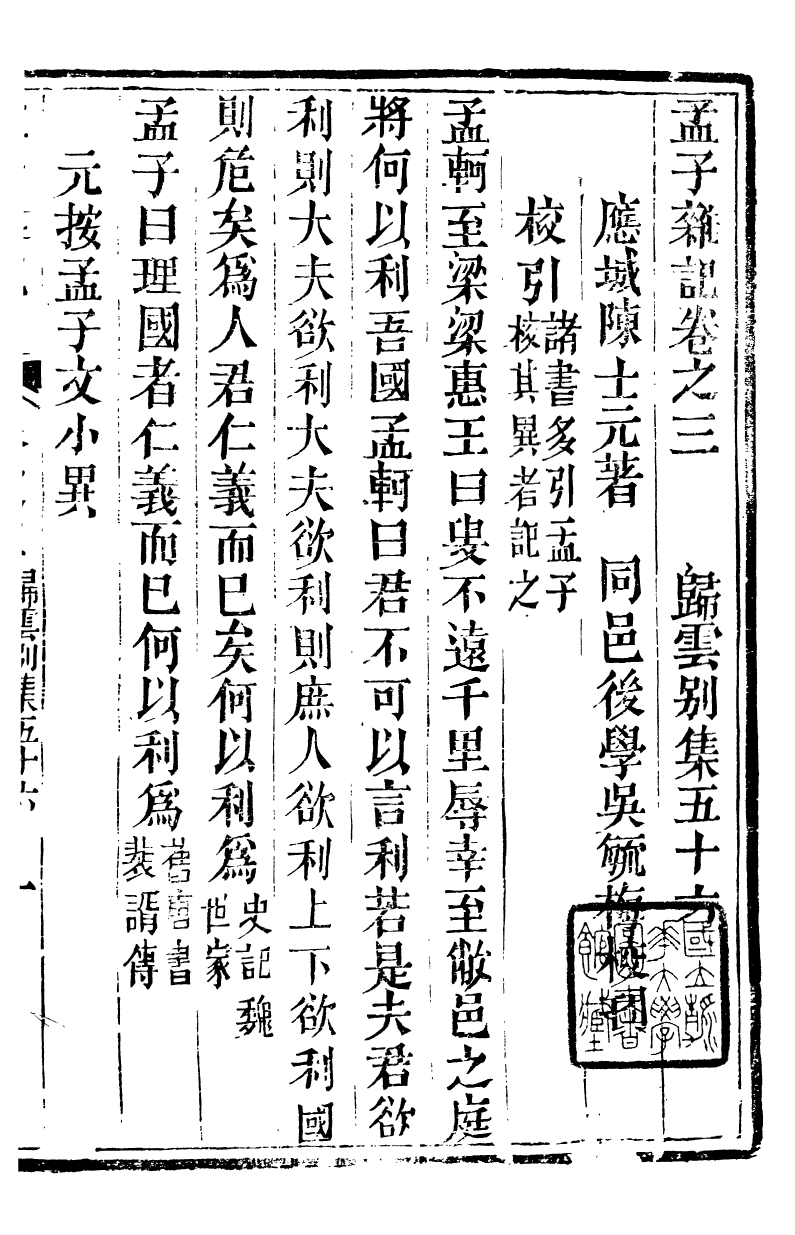 孟子雜記卷之三　歸雲别集五十六
應城陳士元著　同邑後學吳毓梅校刊
校引諸書多引孟子核其異者記之
孟軻至梁梁惠王曰叟不遠千里辱幸至敝邑之庭
將何以利吾國孟軻曰君不可以言利若是夫君欲
利則大夫欲利大夫欲利則庶人欲利上下欲利國
則危矣爲人君仁義而已矣何以利爲史記魏世家
孟子曰理國者仁義而已何以利爲舊唐書裴諝傳
元按孟子文小異
歸雲别集五十六　一